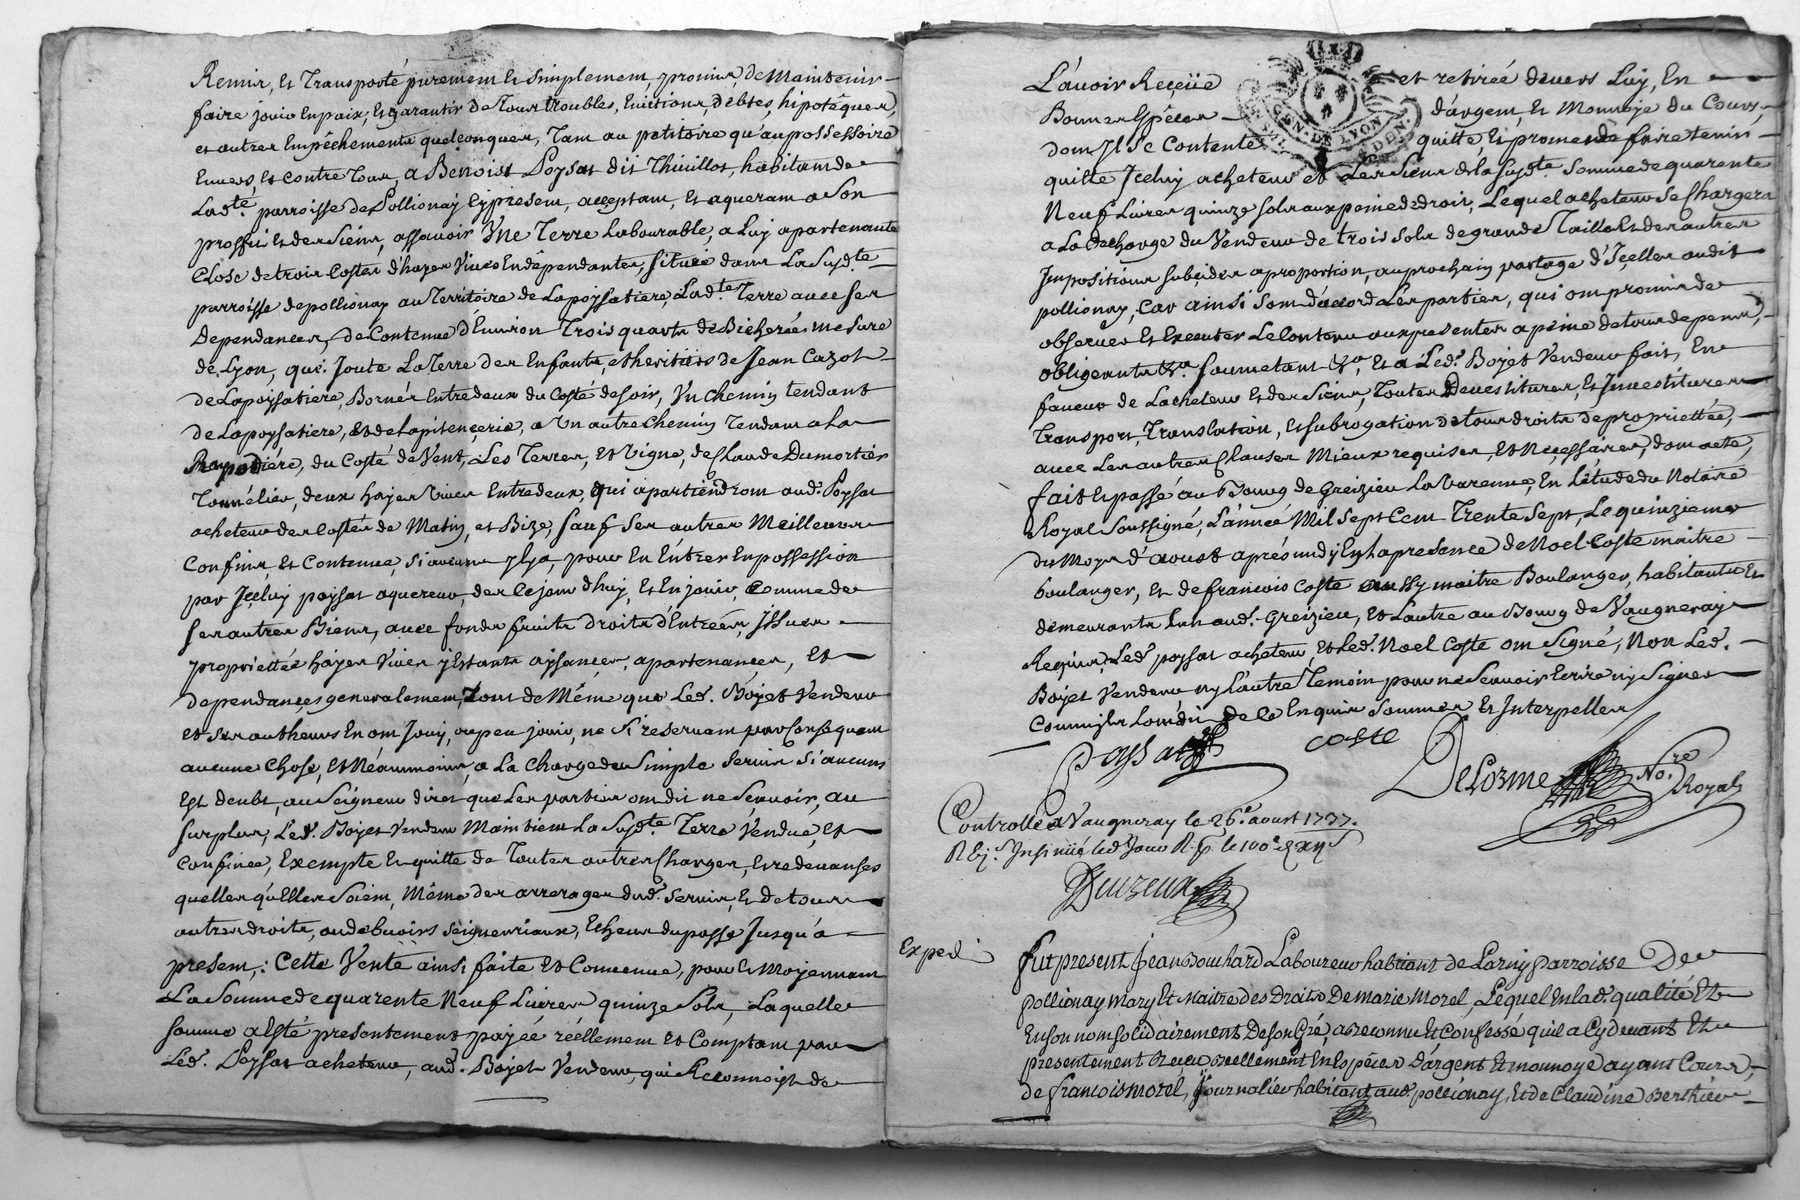 Remis, et Transporté purement et Simplement, promis de Maintenir
faire jouir En paix, et garantir de Tous troubles, Evictions, debtes, hipotêques,
et autres Empêchements quelconques, Tant au petitoire qu'au possessoire
Envers, et contre Tous, a Benoist Poysat dit Thivillot, habitant de
Ladte. parroisse de Pollionay Cy present, acceptant, et aquerant a Son
proffit et des Siens, assavoir Une Terre Labourable, a Luy apartenante
Close de trois Costés d'hayes Vives Endêpendantes, Située dans La Sudte.
parroisse de pollionay au Territoire de Lapoysatiere, Ladte. Terre avec Ses
Dependances, de Contenue d'Environ Trois quarts de Bicherée mesure
de Lyon, qui Joute La Terre des Enfants et heritiers de Jean Cazot
de Lapoysatiere, Bornés Entredeux du Costé de soir, Un chemin tendant
de Lapoysatiere, et de Lapitançerie, a Un autre Chemin Tendant a La
du Costé de Vent, Les Terres, et Vigne, de Claude Dumortier
Tonnélier, deux hayes Vives Entredeux, qui apartiendront aud. Poysat
acheteur des Costés de Matin, et Bize, sauf Ses autres Meilleurs
Confins, et Contenue, Si aucuns Il y a, pour En Entrer En possession
par Içeluy poysat aquereur, des Ce jourd'huy, et En jouir, Comme de
Ses autres Biens, avec fonds fruits droits d'Entrées, Issues
proprietés hayes Vives y Estants aysances, apartenances, et
dependançes generalement, Tout de Même que Led. Bojet Vendeur
et Ses autheurs En ont Jouy, ou peu jouir, ne Si reservant par Consequent
aucune Chose, et Néanmoins, a La Charge du Simple Servis Si aucuns
Est deubt, au Seigneur direct que Les parties ont dit ne Sçavoir, au
surplus, Led. Bojet Vendeur Maintient La Sudte. Terre Vendue, et
confinée, Exempte Et quitte de Toutes autres Charges, et redevanses
quelles qu'Elles Soient, Même des arrerages dud. Servis, Et de tous
autres droits, ou debvoirs Seigneuriaux, Echeus du passé Jusqu'a
present; Cette Vente ainsi faite et Convenue, pour et Moyennant
La Somme de quarente Neuf Livres quinze Sols, Laquelle
somme a Esté presentement payée réellement et Comptant par
Led. Poysat acheteur, aud. Bojet Vendeur, qui Reconnoist de
L'avoir Reçeüe et retirée devers Luy, En
Bonnes Espêces d'argent, et Monnoye du Cours,
dont Il Se Contente quitte, et promet de faire tenir
quitte Iceluy acheteur et Les Siens de la sudte. Somme de quarente
Neuf Livres quinze sols aux peine de droit, Lequel acheteur Se Chargera
a La Decharge du Vendeur de trois Sols de grande Taille et des autres
Impositions Subsides a proportion, au prochain partage d'Içelles audit
pollionay, Car ainsi Sont d'acord Les parties, qui ont promis de
observer Et Executer Le Contenu aux presentes a peine de tous depens,
obligeants &a. Soumetant &a, Et a Led. Bojet Vendeur fait, En
faveur de L'acheteur Et des Siens, Toutes Devestitures, Et Investitures
Transport, Translation, et subrogation de tous droits de propriettée,
avec Les autres Clauses Mieux requises, et Neçessaires, dont acte,
fait et passé au Bourg de Greizieu La Varenne, En L'étude du Notaire
Royal Soussigné, L'année Mil Sept Cent Trente Sept, Le quinzieme
du Mois d'aoust aprés midy En La presence de Noel Coste maitre
boulanger, et de francois Coste aussy maitre Boulanger, habitants Et
demeurants L'un aud. Greizieu, et L'autre au Bourg de Vaugneray
Requis, Led. poysat acheteur, et Led. Noel Coste ont Signé, Non Led.
Bojet Vendeur ny L'autre Temoin pour ne Sçavoir Ecrire ny Signer
Comme ils L'ont dit de Ce Enquis Sommés Et Interpellés
Poyssat
Coste
Delorme Nore. Royal
Controllé a Vaugneray le 26e. aoust 1737.
Insinüé led. Jour
Expedi
fut present Jean Bouchard Laboureur habitant de Larny parroisse De
pollionay Mary Et Maitre des Droits De Marie Morel, Lequel En lad. qualité Et
En son nom solidairement De son Gré, a reconnu Et Confessé qu'il a Cydevant Et
presentement Receu reellement En Espéces D'argent Et monnoye ayant Cours,
de francois morel, Journalier habitant aud. pollionay, Et de Claudine Berthier